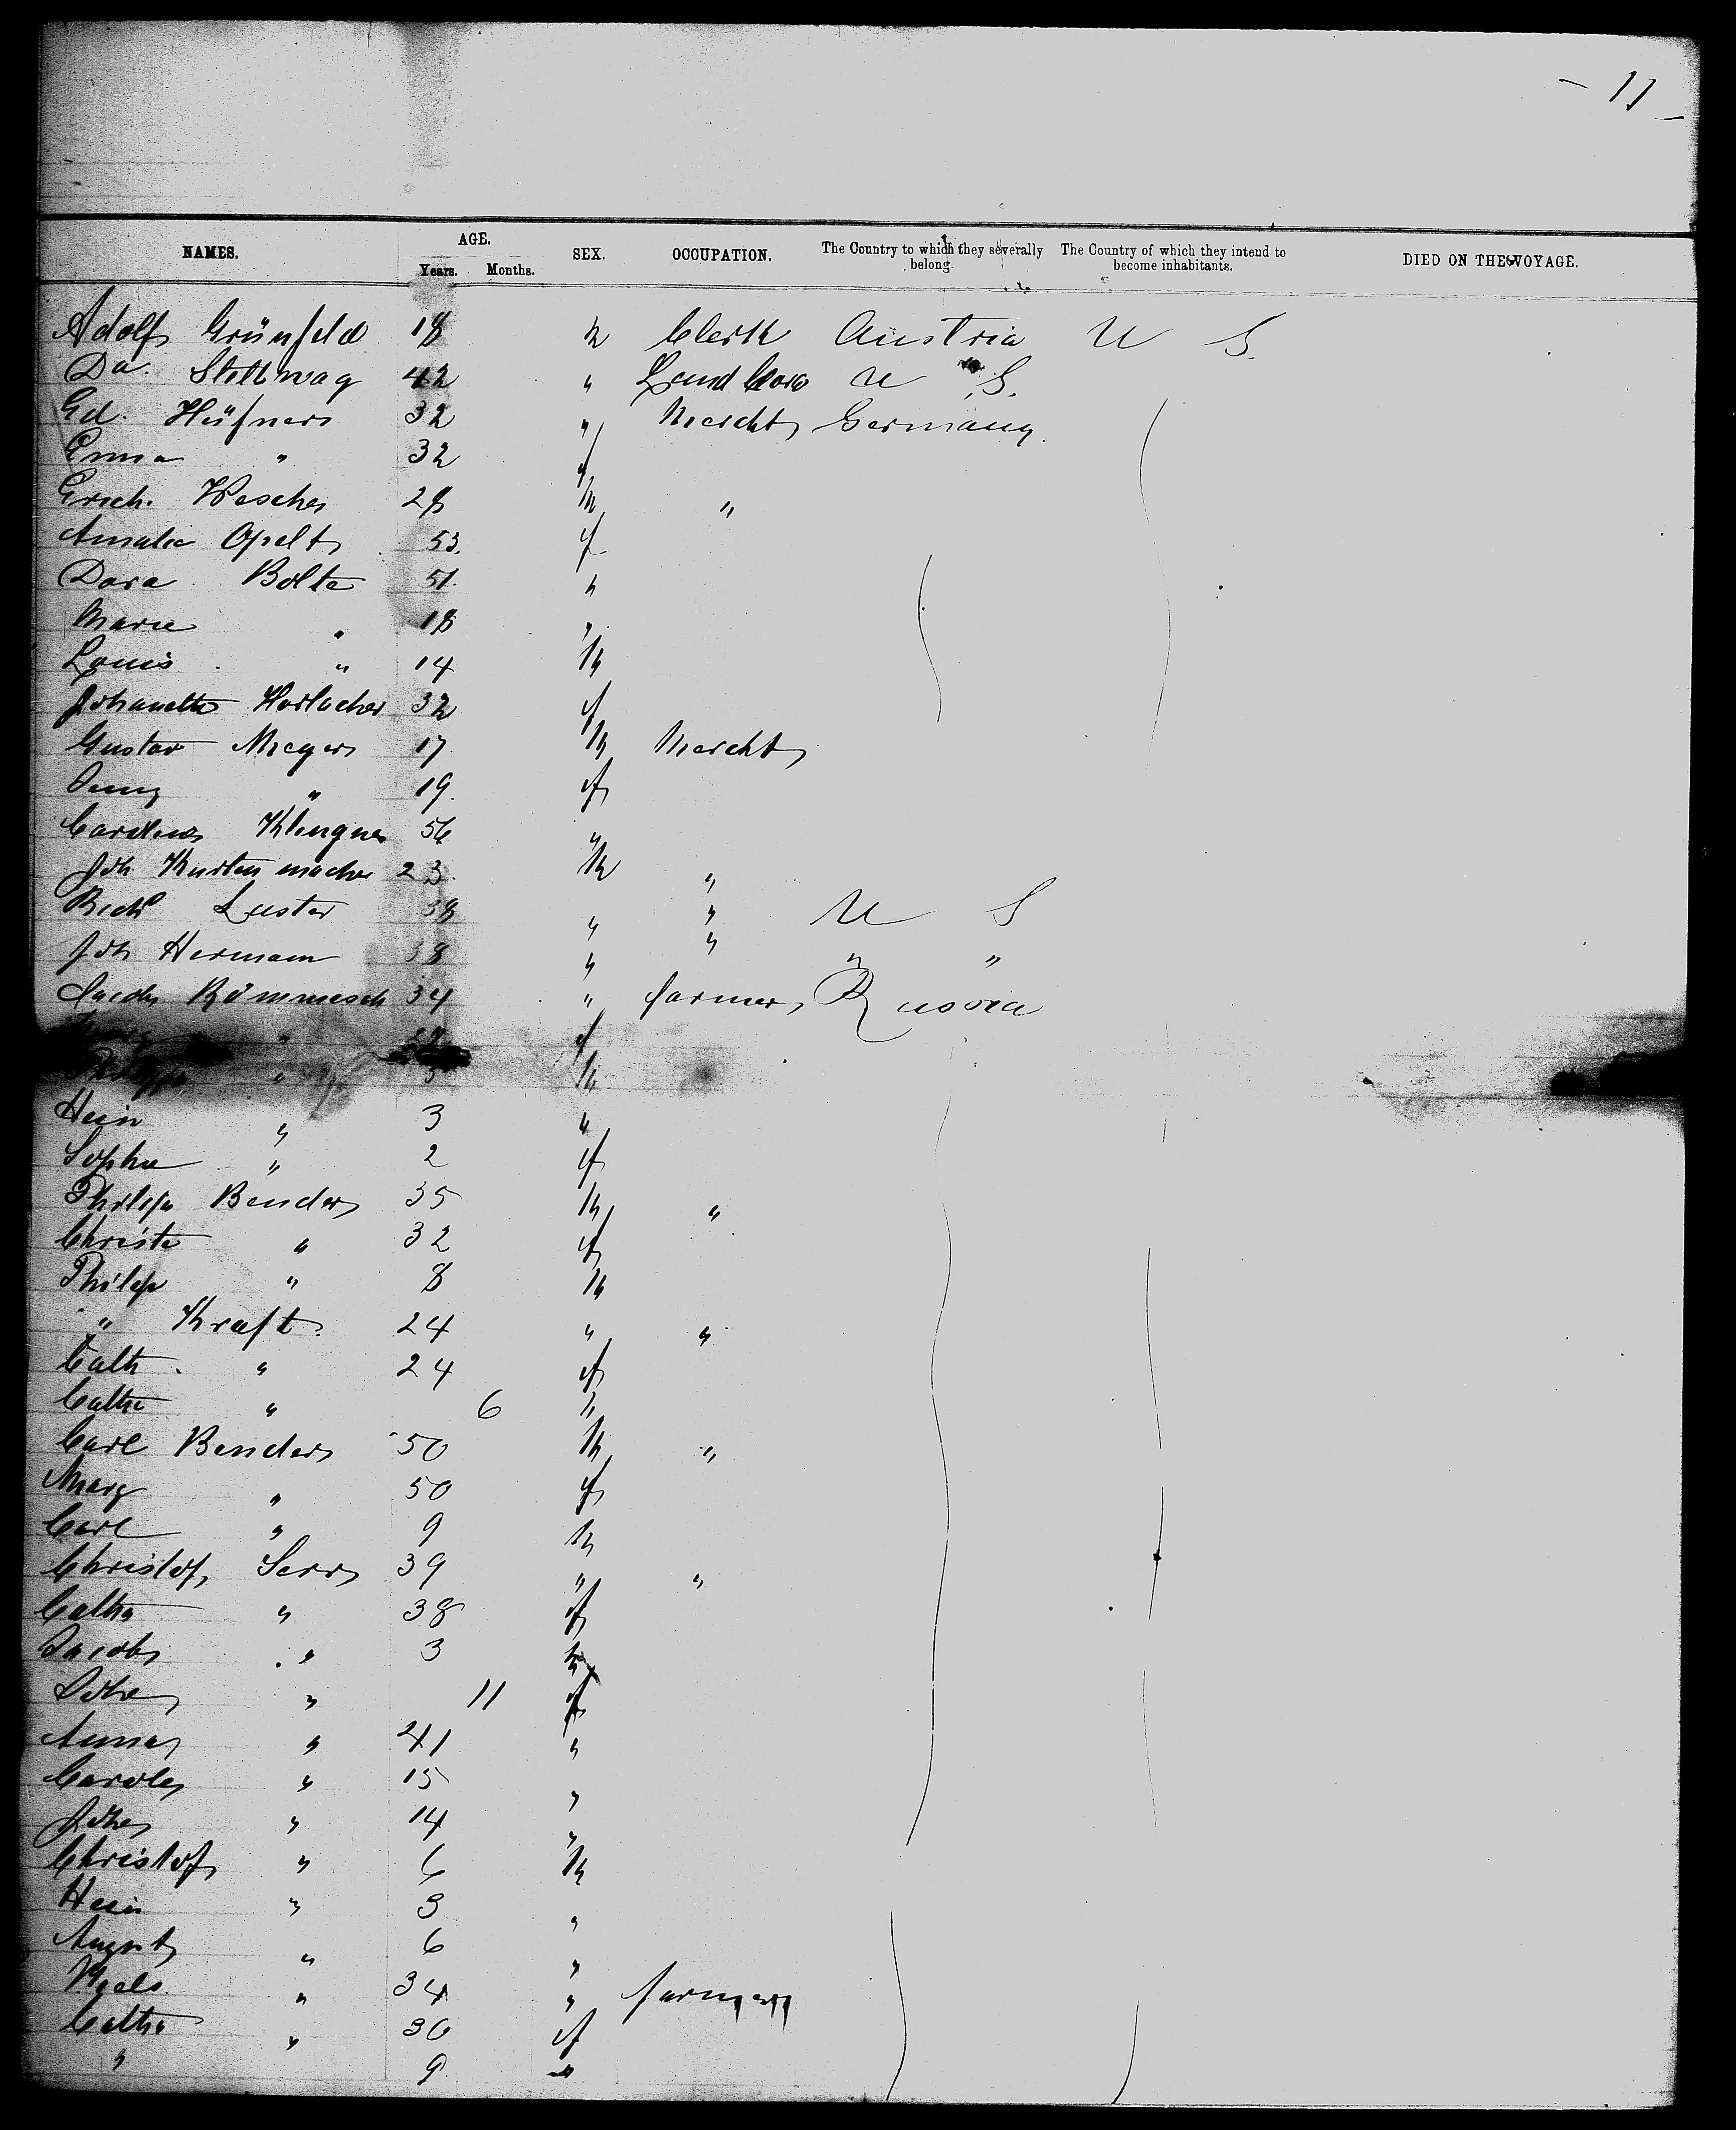 - 11 -
NAMES. AGE. Years. Months. SEX. OCCUPATION. The Country to which they severally belong. The Country of which they intend to become inhabitants. DIED ON THE VOYAGE.
Adolf Grünfeld 18 m Clerk Austria U S.
Da. Stellwag 42 " U S.
Ed. Hüfner 32 " Mercht Germany
Emma " 32 f
Erich. Wescher 28 m "
Amalie Opelt 53. f
Dora Bolte 51. "
Marie " 18 "
Louis " 14 m
Johanette Horlacher 32 f
Gustav Meyer 17 m Mercht
Jenny " 19. f
Klingner 56 "
Joh 23. m "
Richd Luster 38 " " U S
Joh Hermann 38 " " " "
Jacob Römmesch 34 " farmer Russia
" f
Philipp " 5 m
Hein " 3 "
Sophie " 2 f
Philip Bender 35 m "
Christe " 32 f
Philip " 8 m
" Kraft 24 " "
Cath. " 24 f
Cathe " 6 "
Carl Bender 50 m "
Marg " 50 f
Carl " 9 m
Christof Serr 39 " "
Catha " 38 f
Jacob " 3 m
" 11 f
Anna " 41 "
Carole " 15 "
Johe " 14 "
Christof " 6 m
Hein " 3 "
August " 6 "
" 34 " farmer
Catha " 30 f
" 9 "